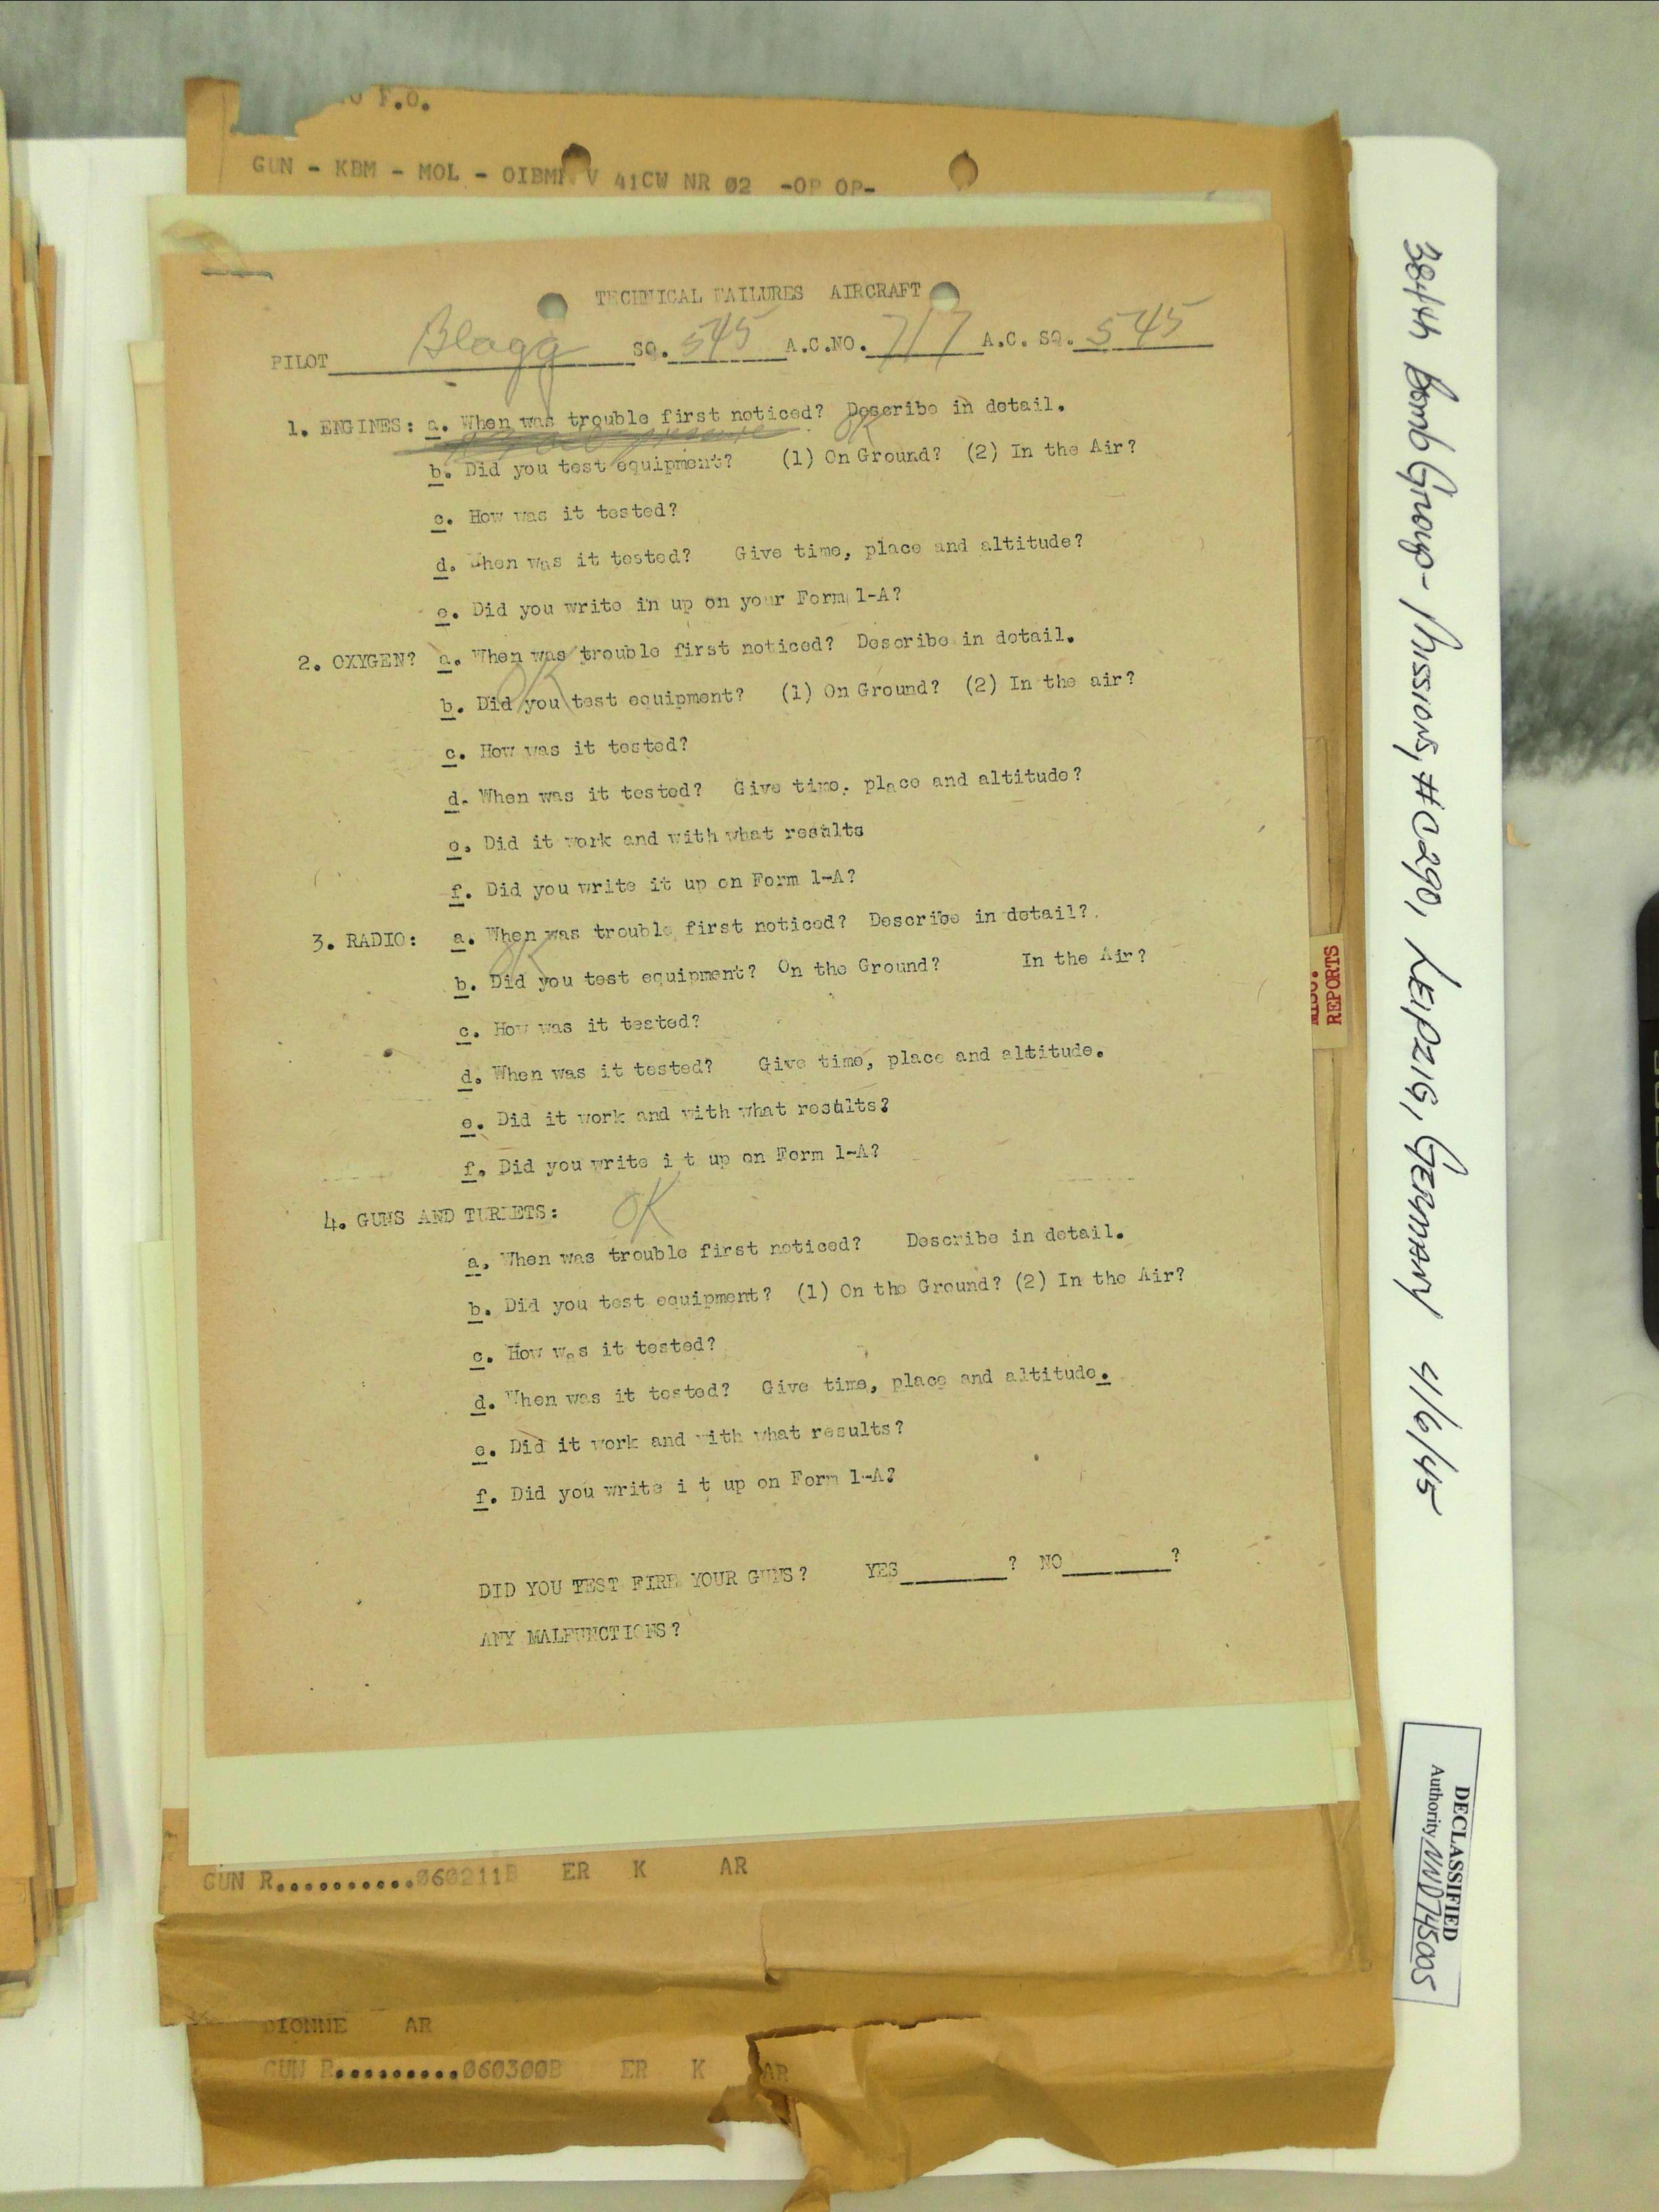 F.O.
GUN - KBM - MOL - OIBMR V 41CW NR 02 -OP OP-
TECHNICAL FAILURES AIRCRAFT
PILOT Blagg SQ. 545 A.C.NO. 717 A.C. SQ. 545
1. ENGINES: a. When was trouble first noticed? Describe in detail.
OK
b. Did you test equipment? (1) On Ground? (2) In the Air?
c. How was it tested?
d. When was it tested? Give time, place and altitude?
e. Did you write in up on your Form 1-A?
2. OXYGEN? a. When was trouble first noticed? Describe in detail.
OK
b. Did you test equipment? (1) On Ground? (2) In the air?
c. How was it tested?
d. When was it tested? Give time, place and altitude?
e. Did it work and with what results
f. Did you write it up on Form 1-A?
3. RADIO: a. When was trouble first noticed? Describe in detail?
OK
b. Did you test equipment? On the Ground? In the Air?
c. How was it tested?
d. When was it tested? Give time, place and altitude.
e. Did it work and with what results?
f. Did you write i t up on Form 1-A?
4. GUNS AND TURRETS: OK
a. When was trouble first noticed? Describe in detail.
b. Did you test equipment? (1) On the Ground? (2) In the Air?
c. How was it tested?
d. When was it tested? Give time, place and altitude.
e. Did it work and with what results?
f. Did you write i t up on Form 1-A?
DID YOU TEST FIRE YOUR GUNS? YES ? NO ?
ANY MALFUNCTIONS?
GUN R..........060211B ER K AR
DIONNE AR
GUN R.........060300B ER K AR
MISC.
REPORTS
384th Bomb Group - Missions, #0290, LEIPZIG, GERMANY 4/6/45
DECLASSIFIED
Authority NND745005